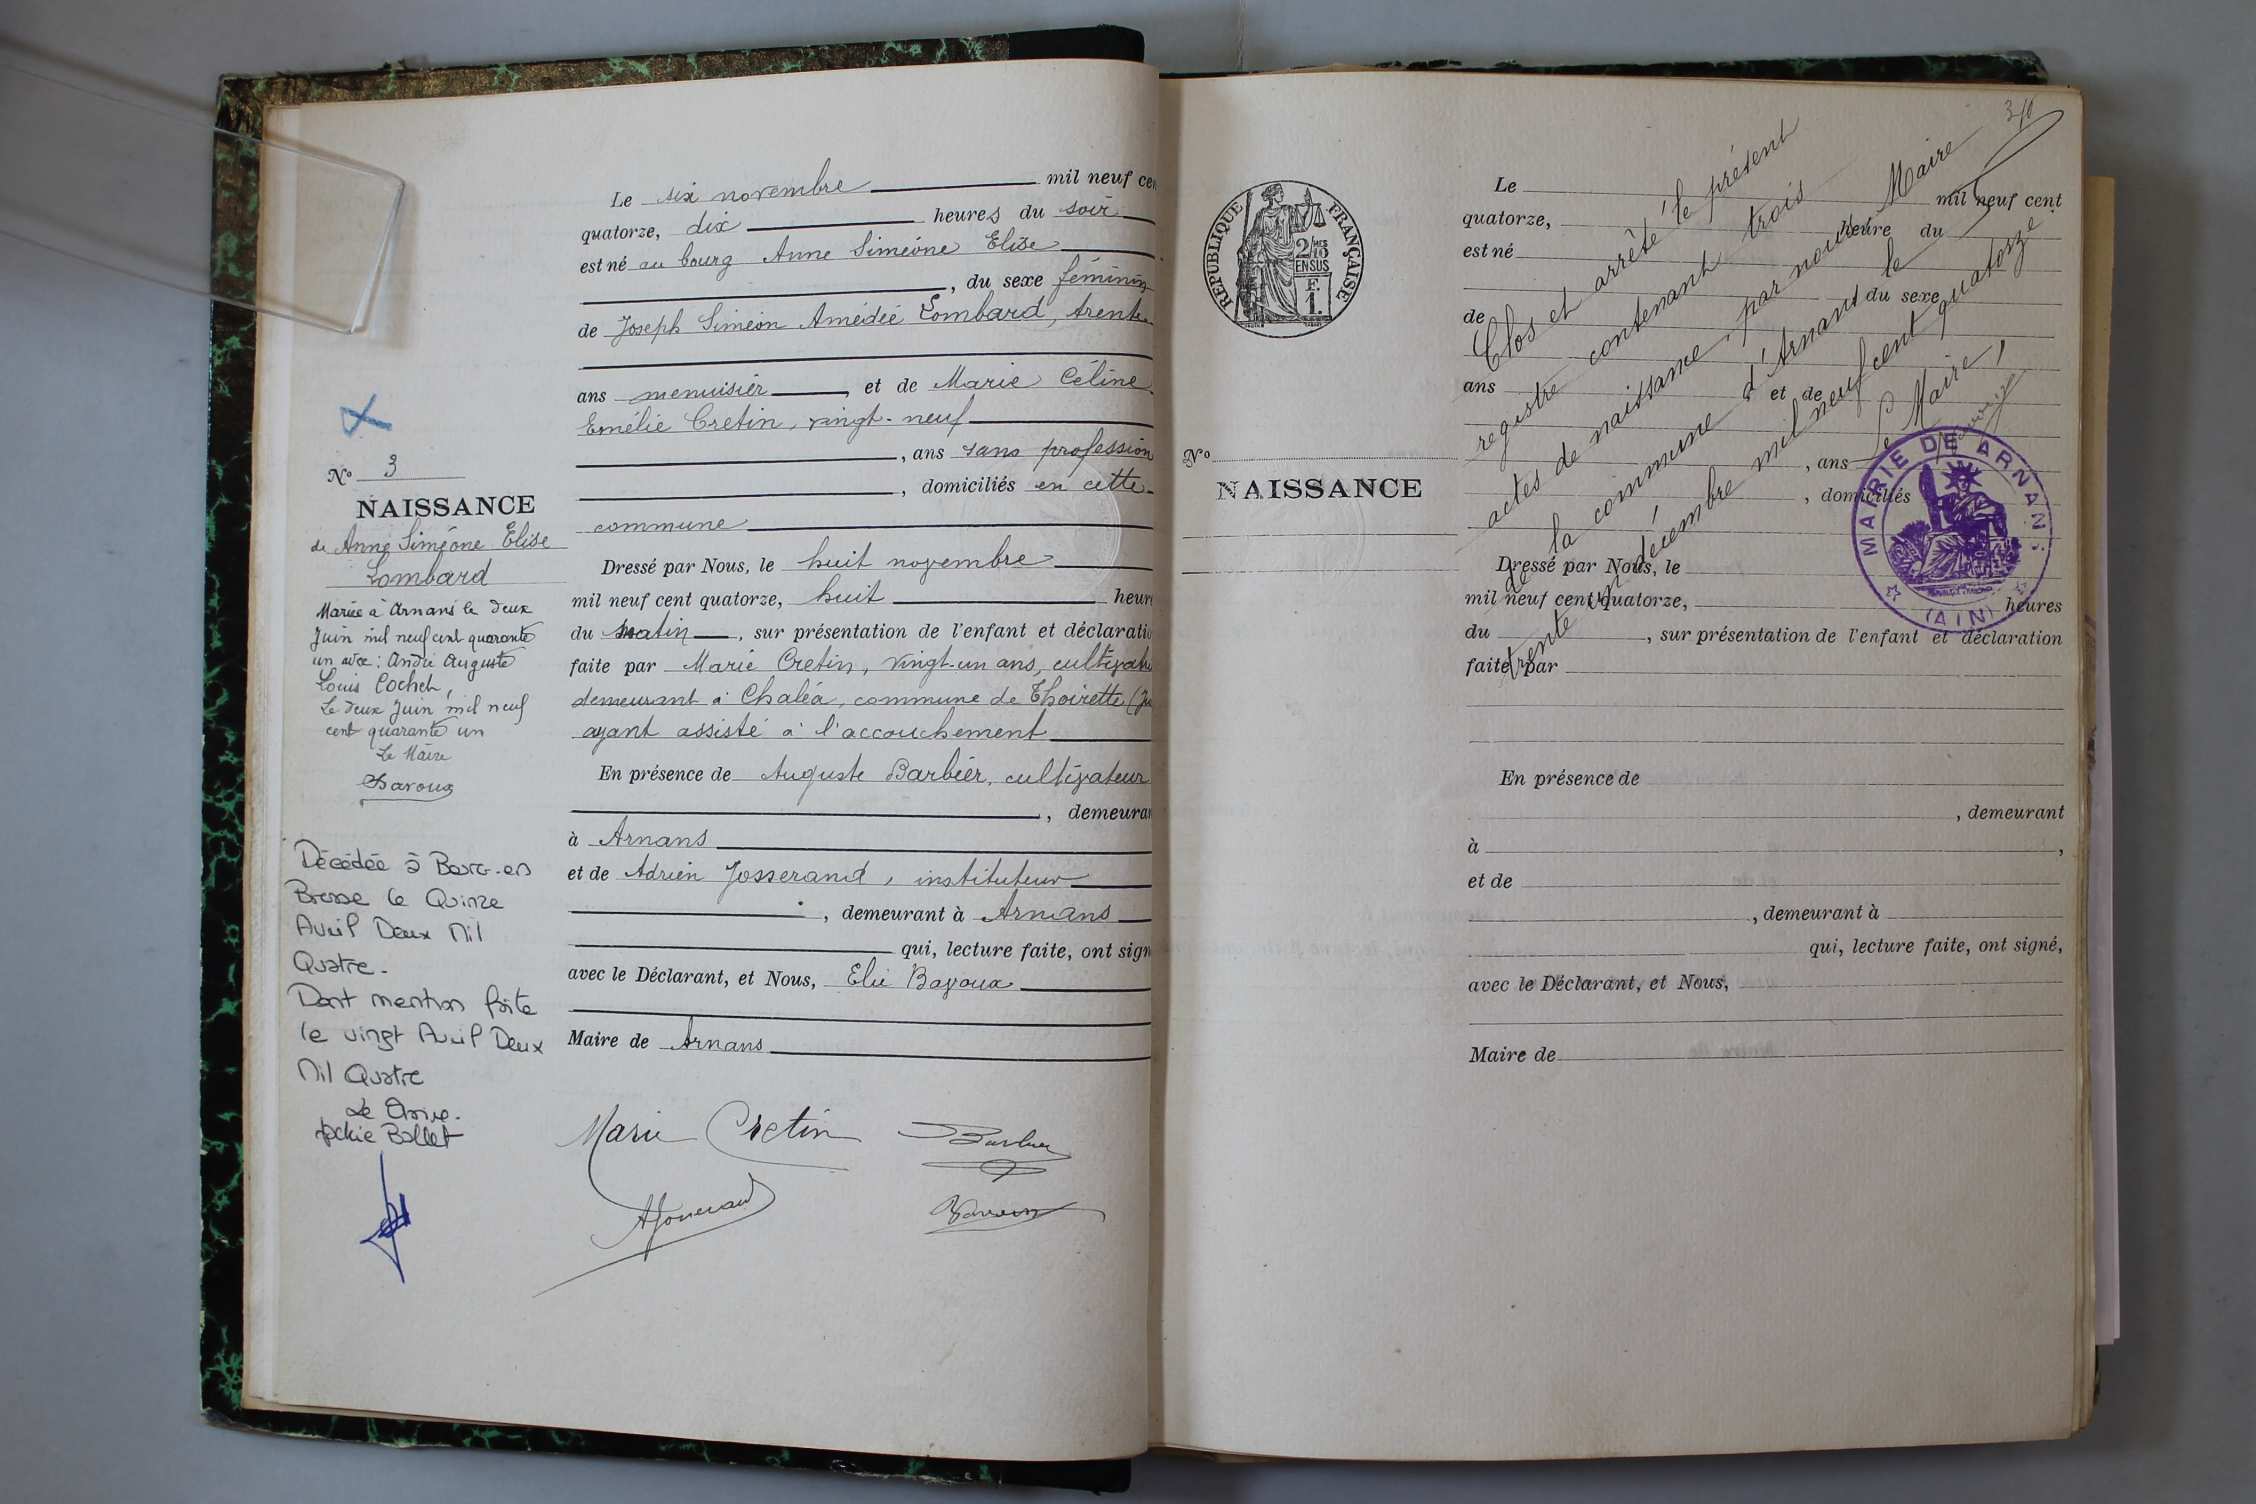 Nº 3
NAISSANCE
de Anne Siméone Elise
Lombard
Mariée à Arnans le deux
Juin mil neuf cent quarante
un avec : André Auguste
Louis Cochet,
Le deux Juin mil neuf
cent quarante un
Le Maire
Décédée à Bourg-en
Bresse le Quinze
Avril Deux Mil
Quatre.
Dont mention faite
le vingt Avril Deux
Mil Quatre
Le Maire.
Jackie Ballet
Le six novembre mil neuf cen
quatorze, dix heures du soir
est né au bourg Anne Siméone Elise
, du sexe féminin
de Joseph Siméon Amédée Lombard, trente
ans menuisier, et de Marie Céline
Emélie Cretin, vingt-neuf
, ans sans profession
, domiciliés en cette
commune
Dressé par Nous, le huit novembre
mil neuf cent quatorze, huit heure
du matin, sur présentation de l'enfant et déclaratio
faite par Marie Cretin, vingt-un ans, cultivat
demeurant à Chaléa, commune de Thoirette (Ju
ayant assisté à l'accouchement
En présence de Auguste Barbier, cultivateur
, demeuran
à Arnans
et de Adrien Josserand, instituteur
, demeurant à Arnans
qui, lecture faite, ont sign
avec le Déclarant, et Nous, Elie Bavoux
Maire de Arnans
Marie Cretin Barbier
AJosserand Bavoux
RÉPUBLIQUE FRANÇAISE
2/10 MES
EN SUS
F.
1.
Nº
NAISSANCE
Le mil neuf cent
quatorze, heure du
est né
du sexe
de
ans et de
, ans
, domiciliés
Dressé par Nous, le
mil neuf cent quatorze, heures
du , sur présentation de l'enfant et déclaration
faite par
En présence de
, demeurant
à ,
et de
, demeurant à
qui, lecture faite, ont signé,
avec le Déclarant, et Nous,
Maire de
Clos et arrêté le présent
registre contenant trois
actes de naissance, par nous Maire
de la commune d'Arnans le
trente un décembre mil neuf cent quatorze
Le Maire,
MAIRIE DE ARNANS
(AIN)